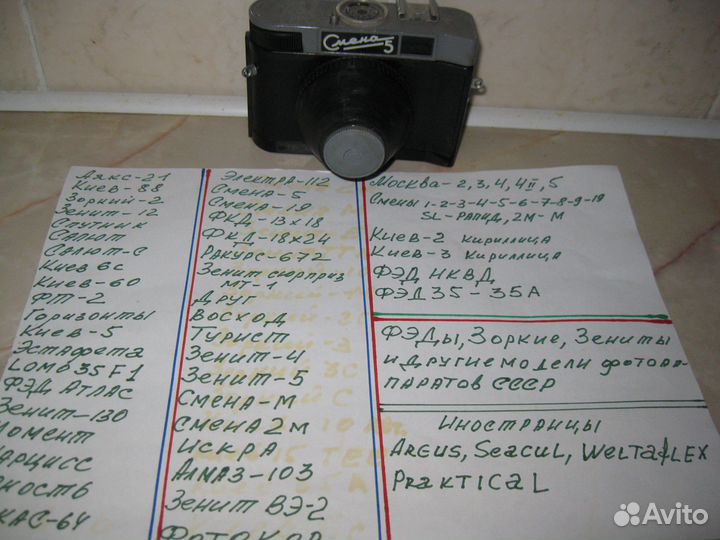 Смена 5
Аякс-21
Киев-88
Зоркий-2
Зенит-12
Спутник
Салют
Салют-С
Киев 6с
Киев-60
ФТ-2
Горизонты
Киев-5
Эстафета
LOMO 35 F1
ФЭД АТЛАС
Зенит-130
Момент
Нарцисс
Юность
КАС-64
Электра-112
Смена-5
Смена-19
ФКД-13х18
ФКД-18х24
Ракурс-672
Зенит сюрприз
МТ-1
Друг
Восход
Турист
Зенит-4
Зенит-5
Смена-М
Смена 2М
Искра
Алмаз-103
Зенит ВЭ-2
Фотокор
Москва-2,3,4,4II,5
Смены 1-2-3-4-5-6-7-8-9-19
SL-РАПИД, 2М-М
Киев-2 Кириллица
Киев-3 Кириллица
ФЭД НКВД
ФЭД 35-35А
ФЭДы, Зоркие, Зениты
и другие модели фотоап-
паратов СССР
Иностранцы
Argus, Seacul, Weltaflex
Praktical
Avito